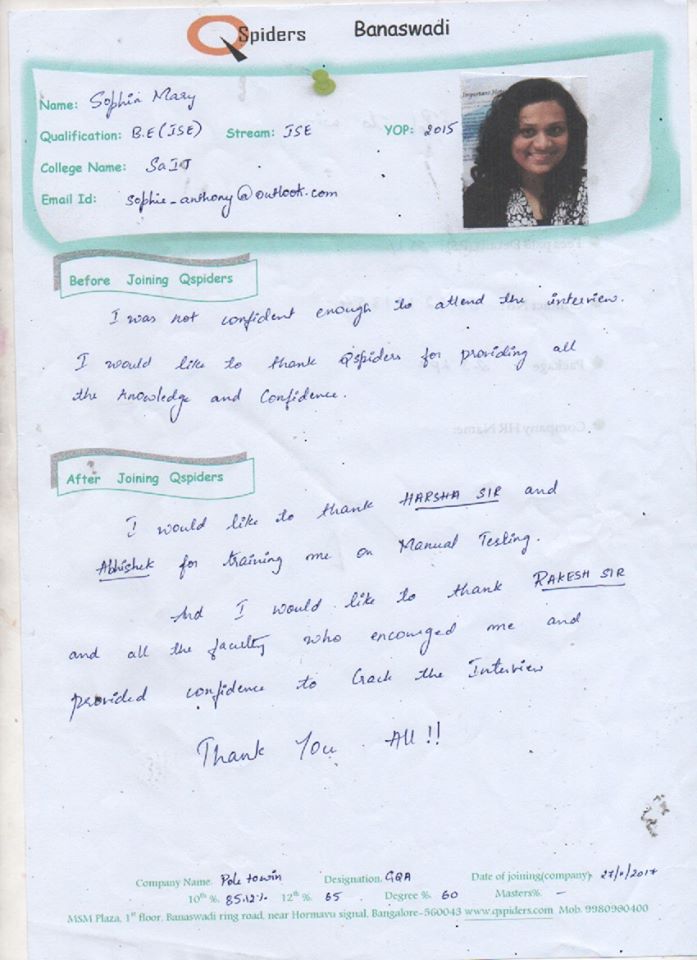 QSpiders Banaswadi
Name: Sophia Mary
Qualification: B.E(ISE) Stream: ISE YOP: 2015
College Name: SaIT
Email Id: sophie_anthony@outlook.com
Before Joining Qspiders
I was not confident enough to attend the interview.
I would like to thank Qspiders for providing all
the knowledge and Confidence.
After Joining Qspiders
I would like to thank HARSHA SIR and
Abhishek for training me on Manual Testing.
And I would like to thank RAKESH SIR
and all the faculty who encouraged me and
provided confidence to Crack the Interview
Thank You All!!
Company Name. Pole towin Designation. GQA Date of joining(company).
10th %. 85.12% 12th %. 65 Degree %. 60 Masters%. –
MSM Plaza, 1st floor, Banaswadi ring road, near Hormavu signal, Bangalore-560043 www.qspiders.com Mob. 9980980400